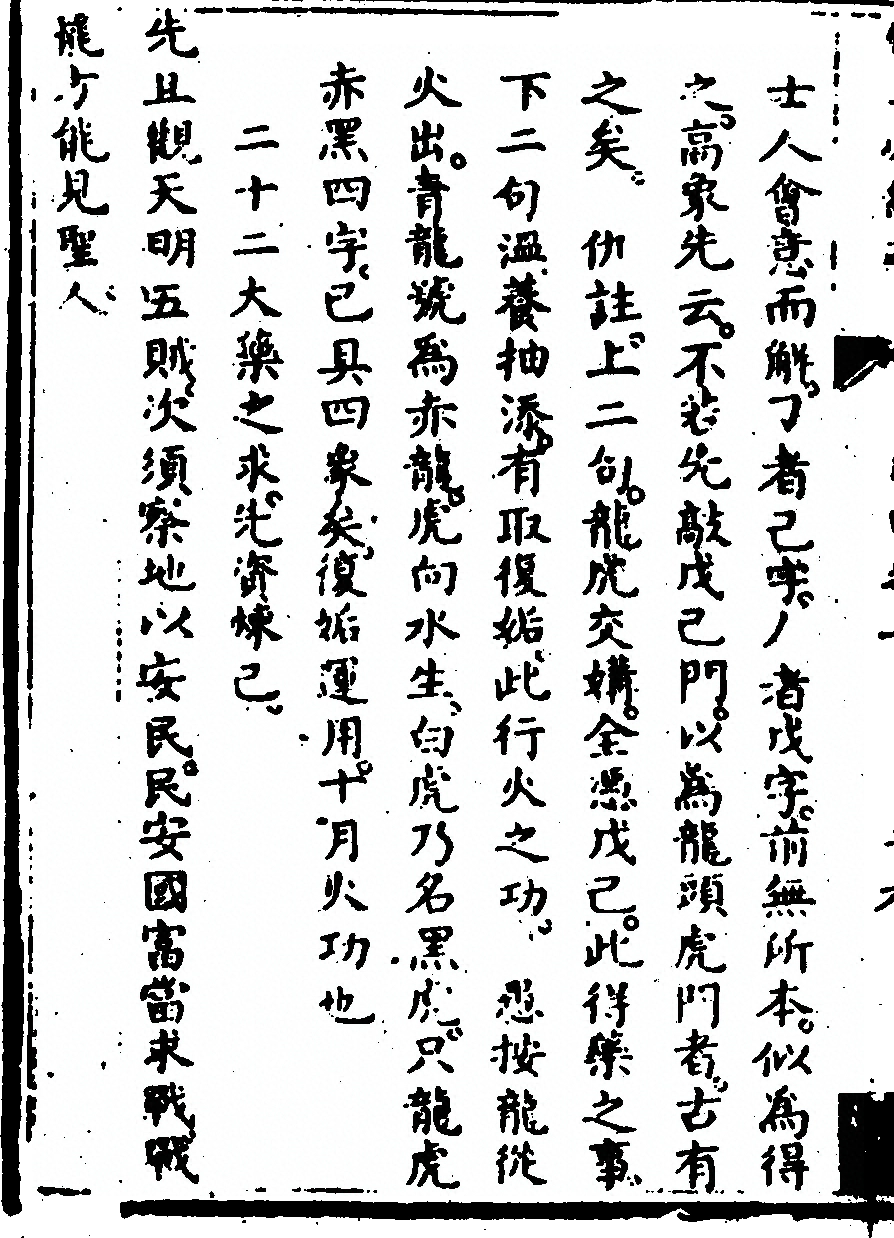 士人會意而觧。𠃌者己字。丿者戊字。前無所本。似為得
之。高象先云。不若先敲戊己門。以為龍頭虎門者。古有
之矣。　仇註。上二句。龍虎交媾。全憑戊己。此得藥之事、
下二句溫養抽添。有取復姤。此行火之功。　愚按龍從
火出。青龍號為赤龍。虎向水生、白虎乃名黑虎。只龍虎
赤黑四字、已具四象矣、復姤運用。十月火功也
二十二大藥之求。先資煉己。
先且觀天明五賊、次須察地以安民。民安國富當求戰、戰
罷方能見聖人。